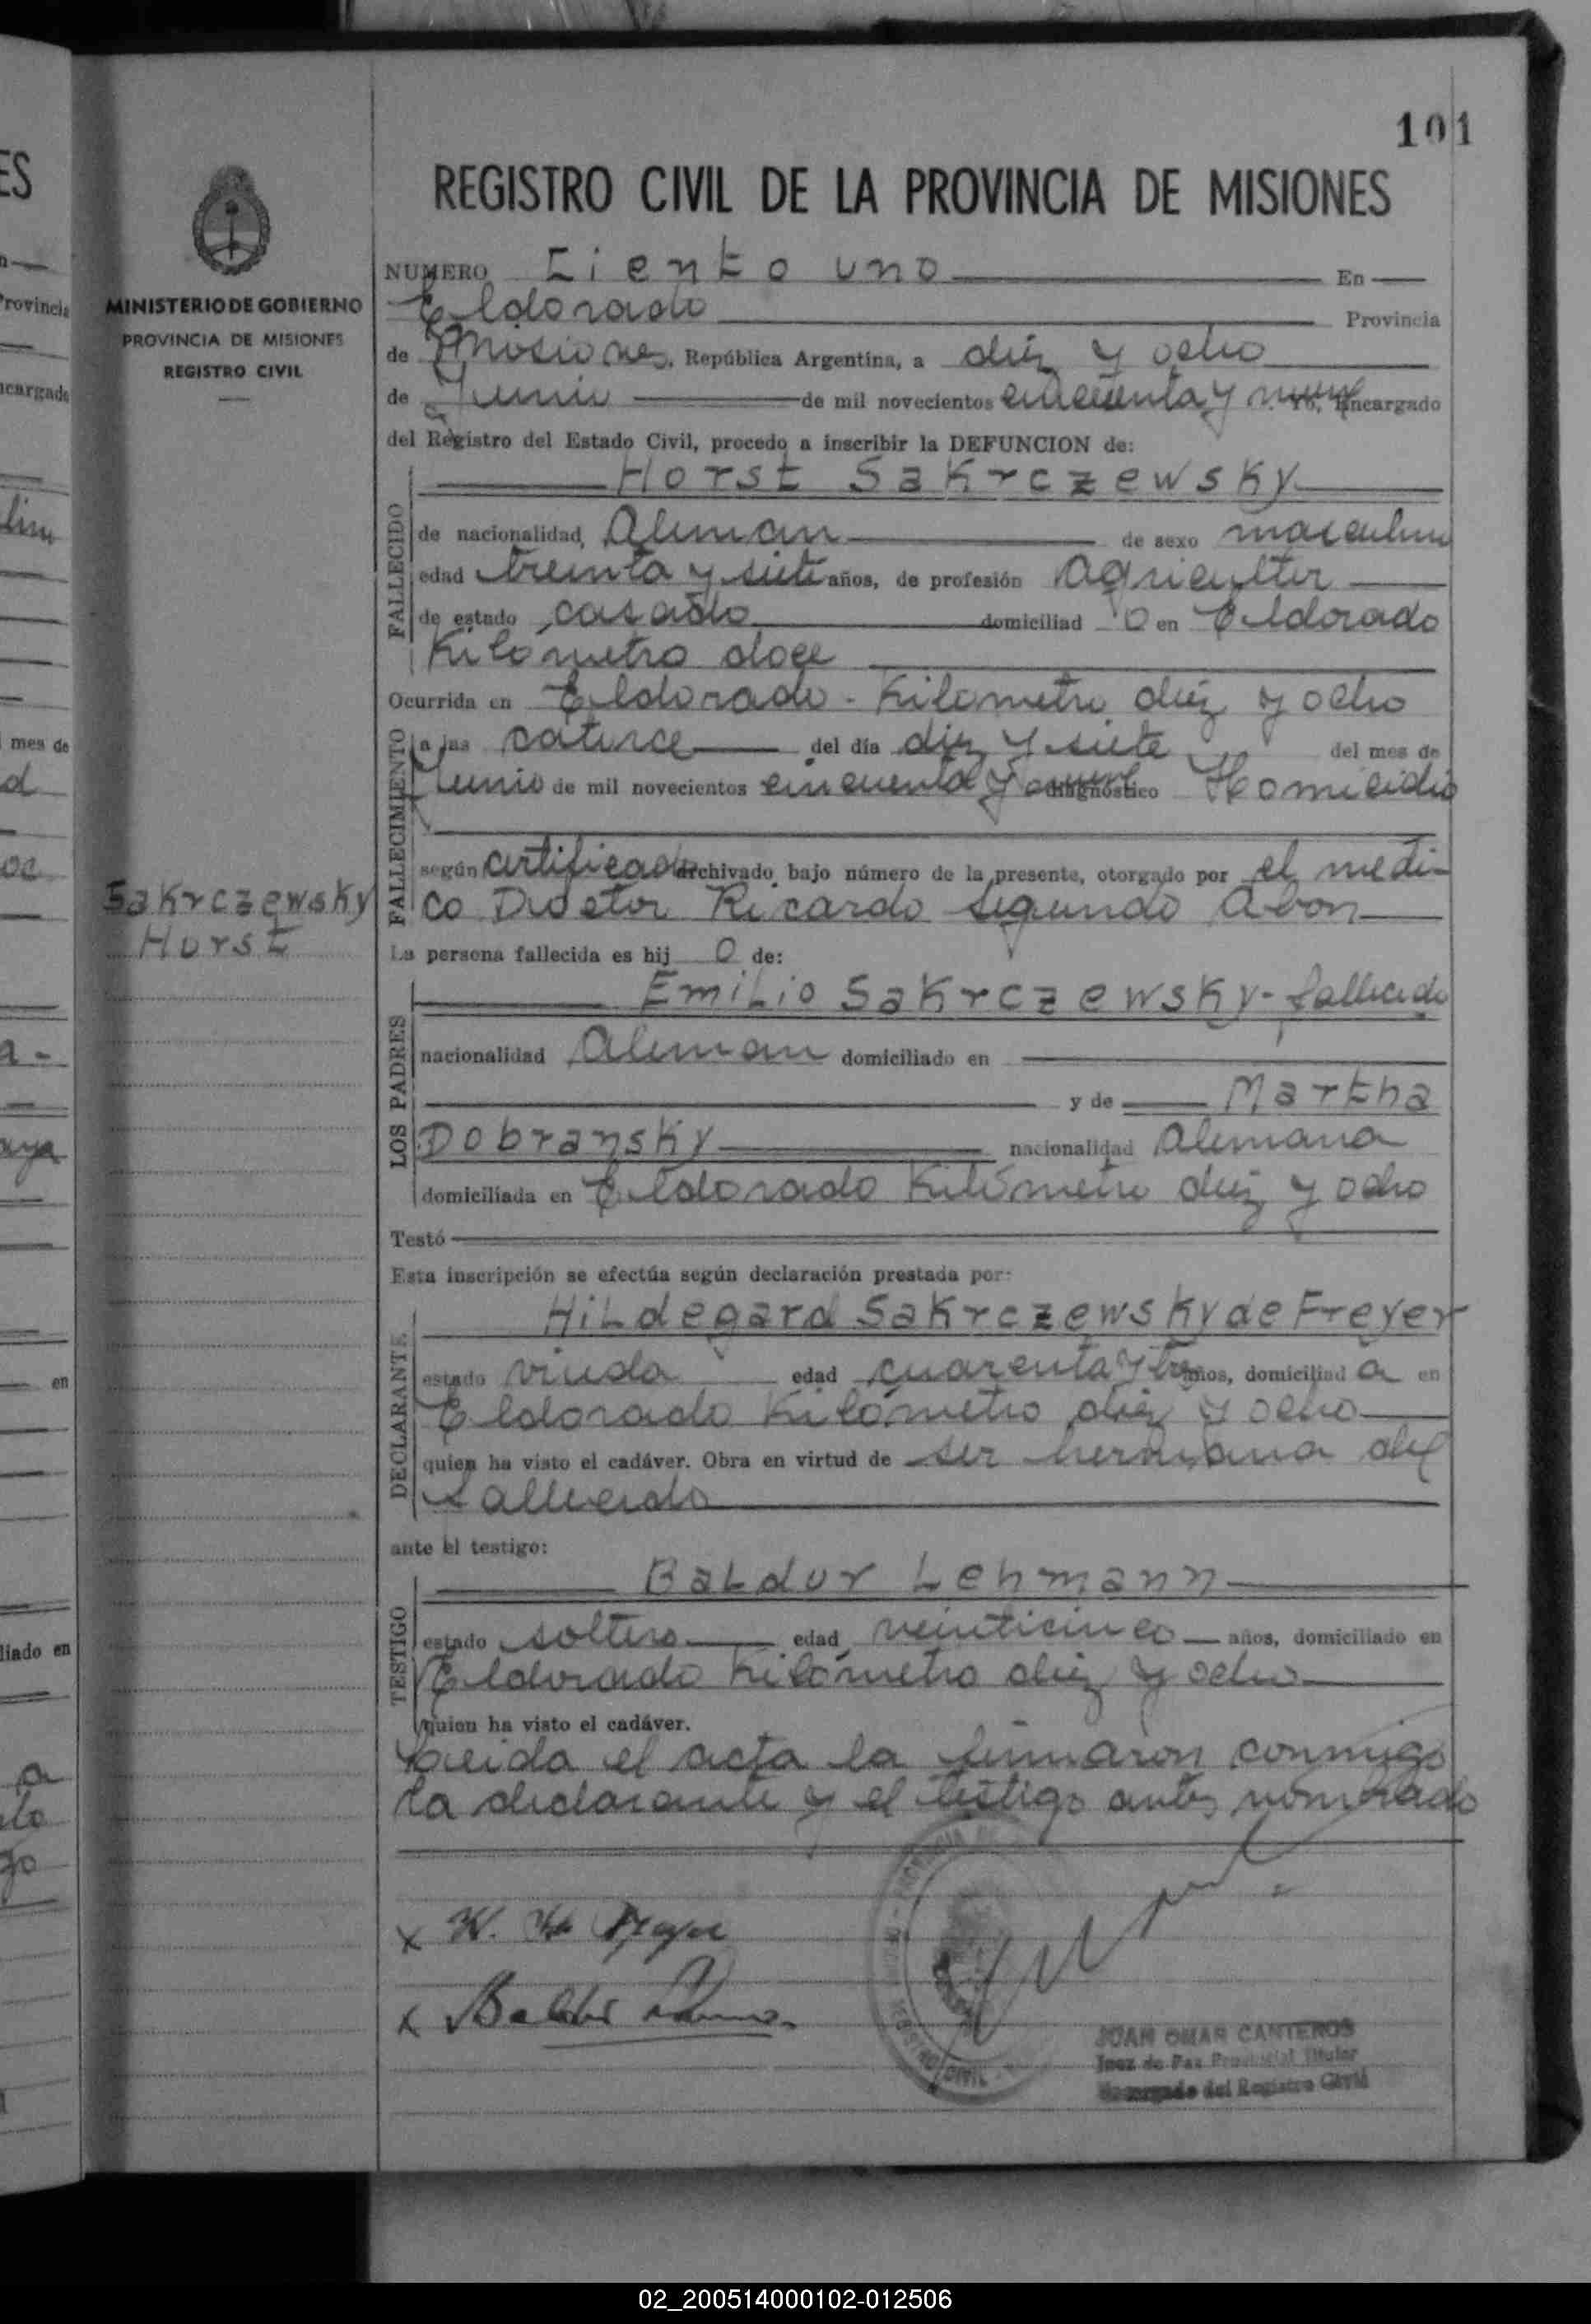 101
REGISTRO CIVIL DE LA PROVINCIA DE MISIONES
MINISTERIO DE GOBIERNO
PROVINCIA DE MISIONES
REGISTRO CIVIL
NUMERO Ciento uno En
Eldorado Provincia
de Misiones, República Argentina, a diez y ocho
de Junio de mil novecientos cincuenta y nueve Yo, Encargado
del Registro del Estado Civil, procedo a inscribir la DEFUNCION de:
Horst Sakrczewsky
FALLECIDO
de nacionalidad, Aleman de sexo masculino
edad treinta y siete años, de profesión Agricultor
de estado casado domiciliad o en Eldorado
Kilometro doce
Ocurrida en Eldorado - Kilometro diez y ocho
FALLECIMIENTO
a las catorce del día diez y siete del mes de
Junio de mil novecientos cincuenta y nueve diagnóstico Homicidio
según certificado archivado bajo número de la presente, otorgado por el medi-
co Doctor Ricardo Segundo Abon
Sakrczewsky
Horst
La persona fallecida es hij o de:
LOS PADRES
Emilio Sakrczewsky - fallecido
nacionalidad Aleman domiciliado en
y de Martha
Dobransky nacionalidad Alemana
domiciliada en Eldorado Kilómetro diez y ocho
Testó
Esta inscripción se efectúa según declaración prestada por:
DECLARANTE
Hildegard Sakrczewsky de Freyer
estado viuda edad cuarenta y tres años, domiciliad a en
Eldorado Kilómetro diez y ocho
quien ha visto el cadáver. Obra en virtud de ser hermana del
fallecido
ante el testigo:
TESTIGO
Baldur Lehmann
estado soltero edad veinticinco años, domiciliado en
Eldorado Kilómetro diez y ocho
quien ha visto el cadáver.
Leida el acta la firmaron conmigo
la declarante y el testigo antes nombrado
JUAN OMAR CANTEROS
Juez de Paz Provincial Titular
Encargado del Registro Civil
02_200514000102-012506